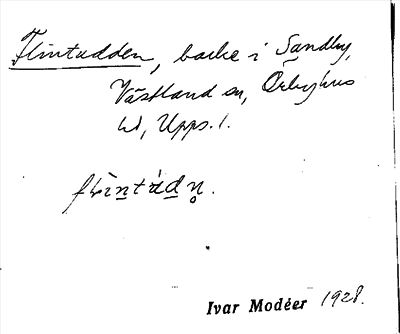 Flintudden, backe i Sandby,
Västland sn, Örbyhus
hd, Upps. l.
flìntùdn̥.
Ivar Modéer 1928.